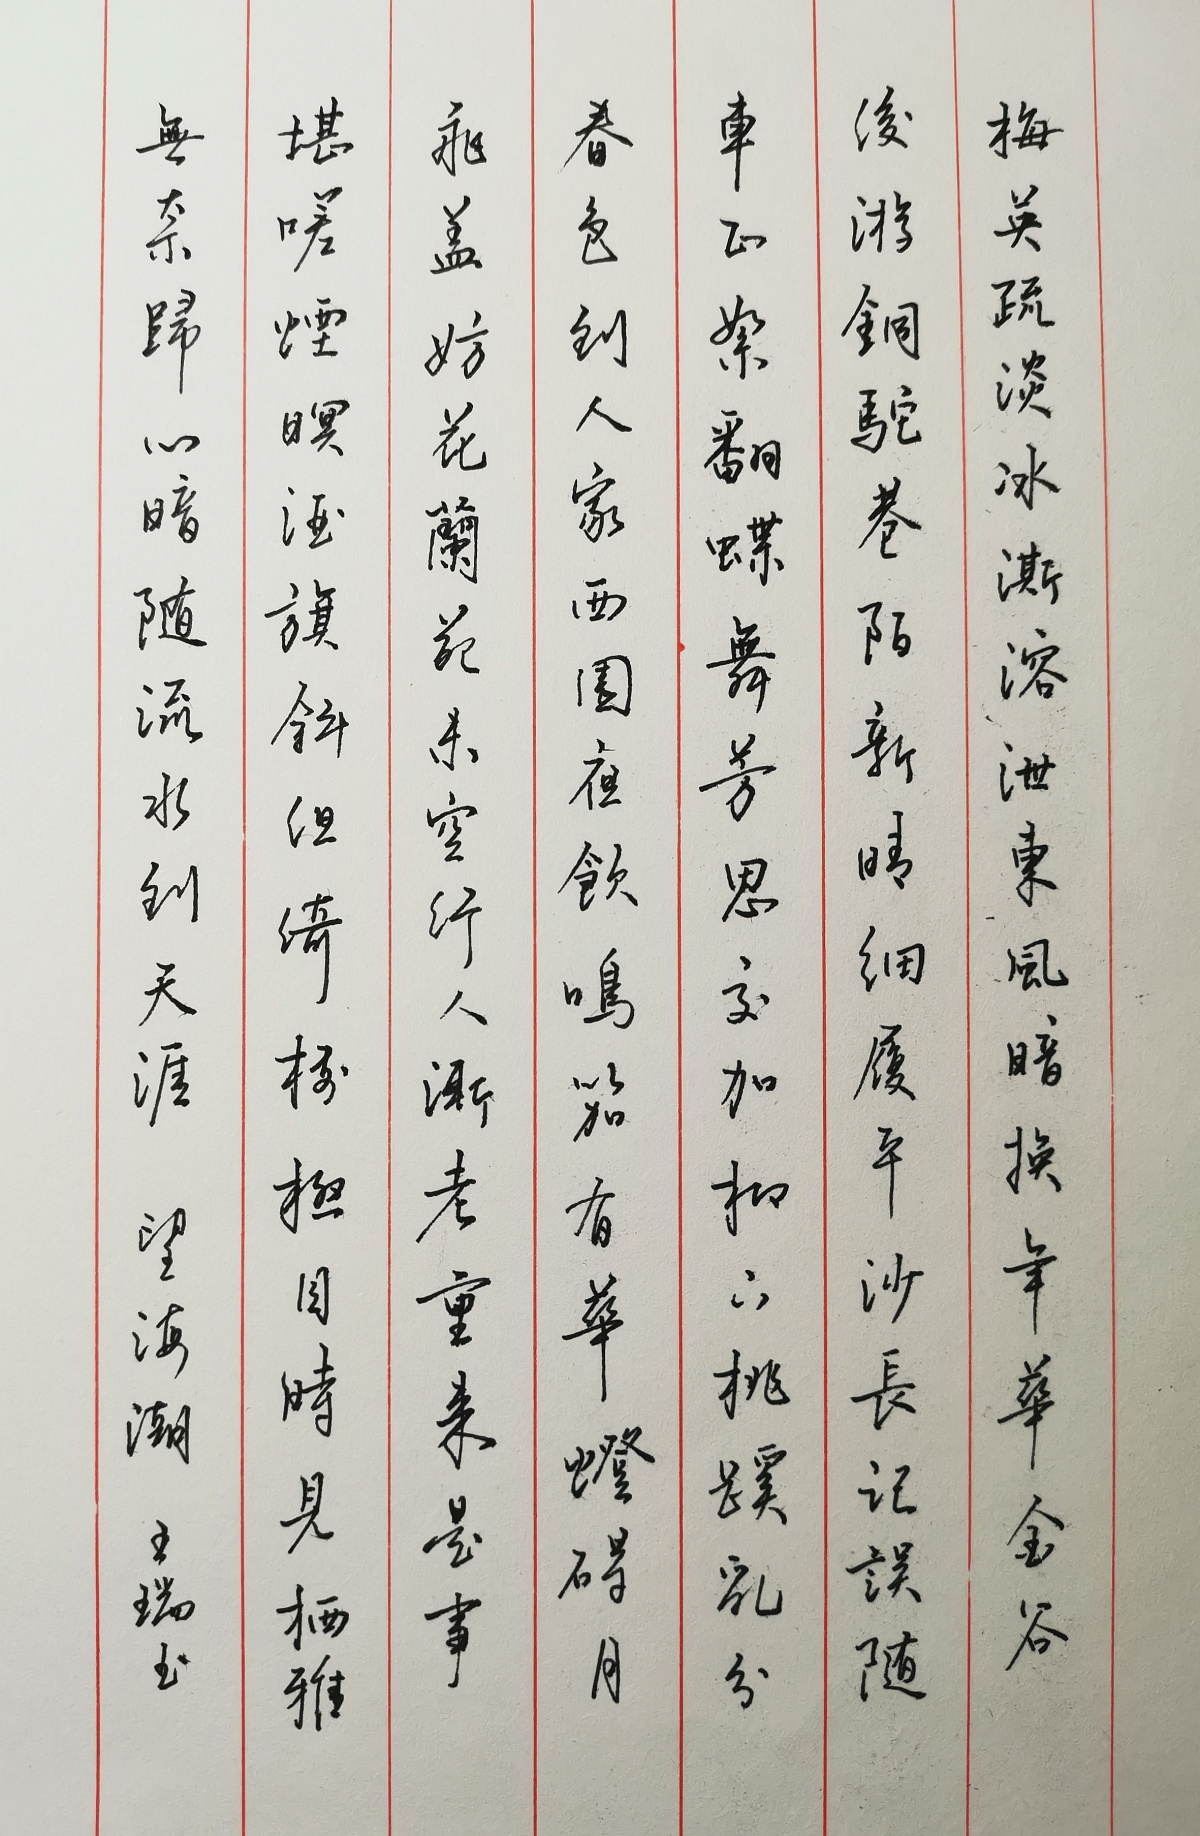 梅英疏淡冰澌溶泄東風暗換年華金谷
俊游銅駝巷陌新晴細履平沙長記誤随
車正絮翻蝶舞芳思交加柳下桃蹊亂分
春色到人家西園夜飲鳴笳有華燈碍月
飛盖妨花蘭苑未空行人漸老重来是事
堪嗟煙暝酒旗斜但倚樓極目時見栖鴉
無奈歸心暗随流水到天涯 望海潮 王瑞書